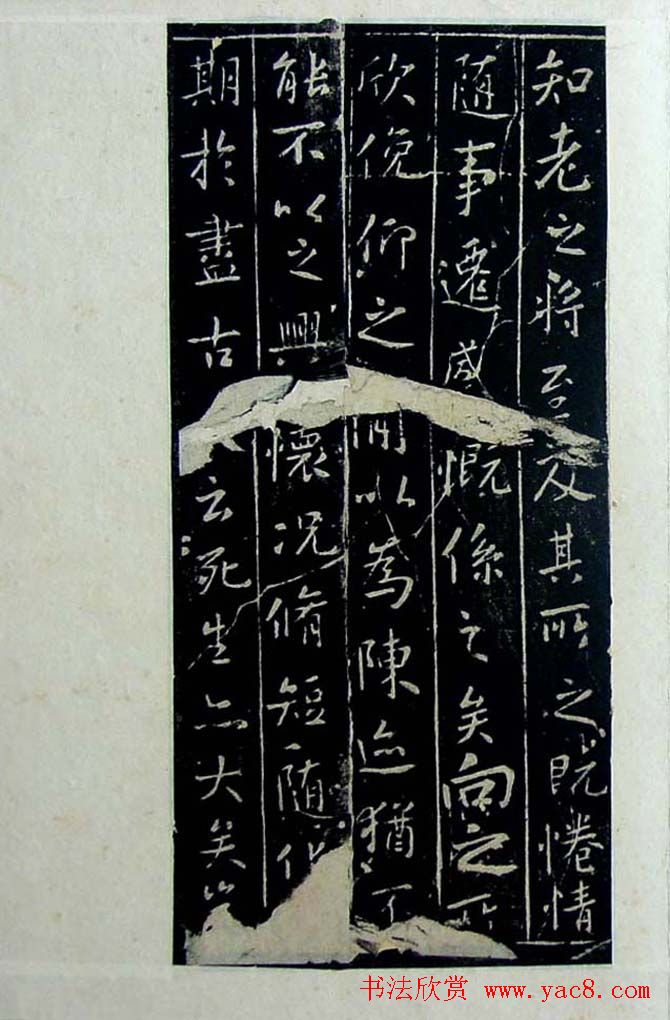 知老之将至及其所之既惓情
随事遷感慨係之矣向之所
欣俛仰之間以為陳迹猶不
能不以之興懷况脩短随化
期於盡古云死生亦大矣豈
书法欣赏 www.yac8.com